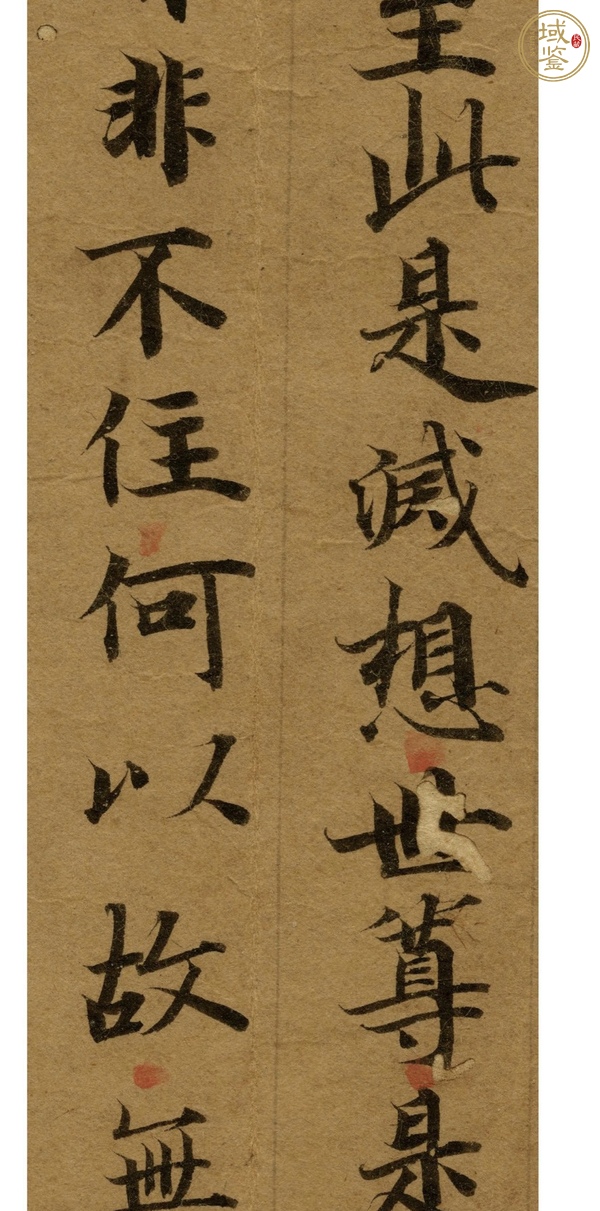 至此是滅想世尊是
非不住何以故無
域鉴